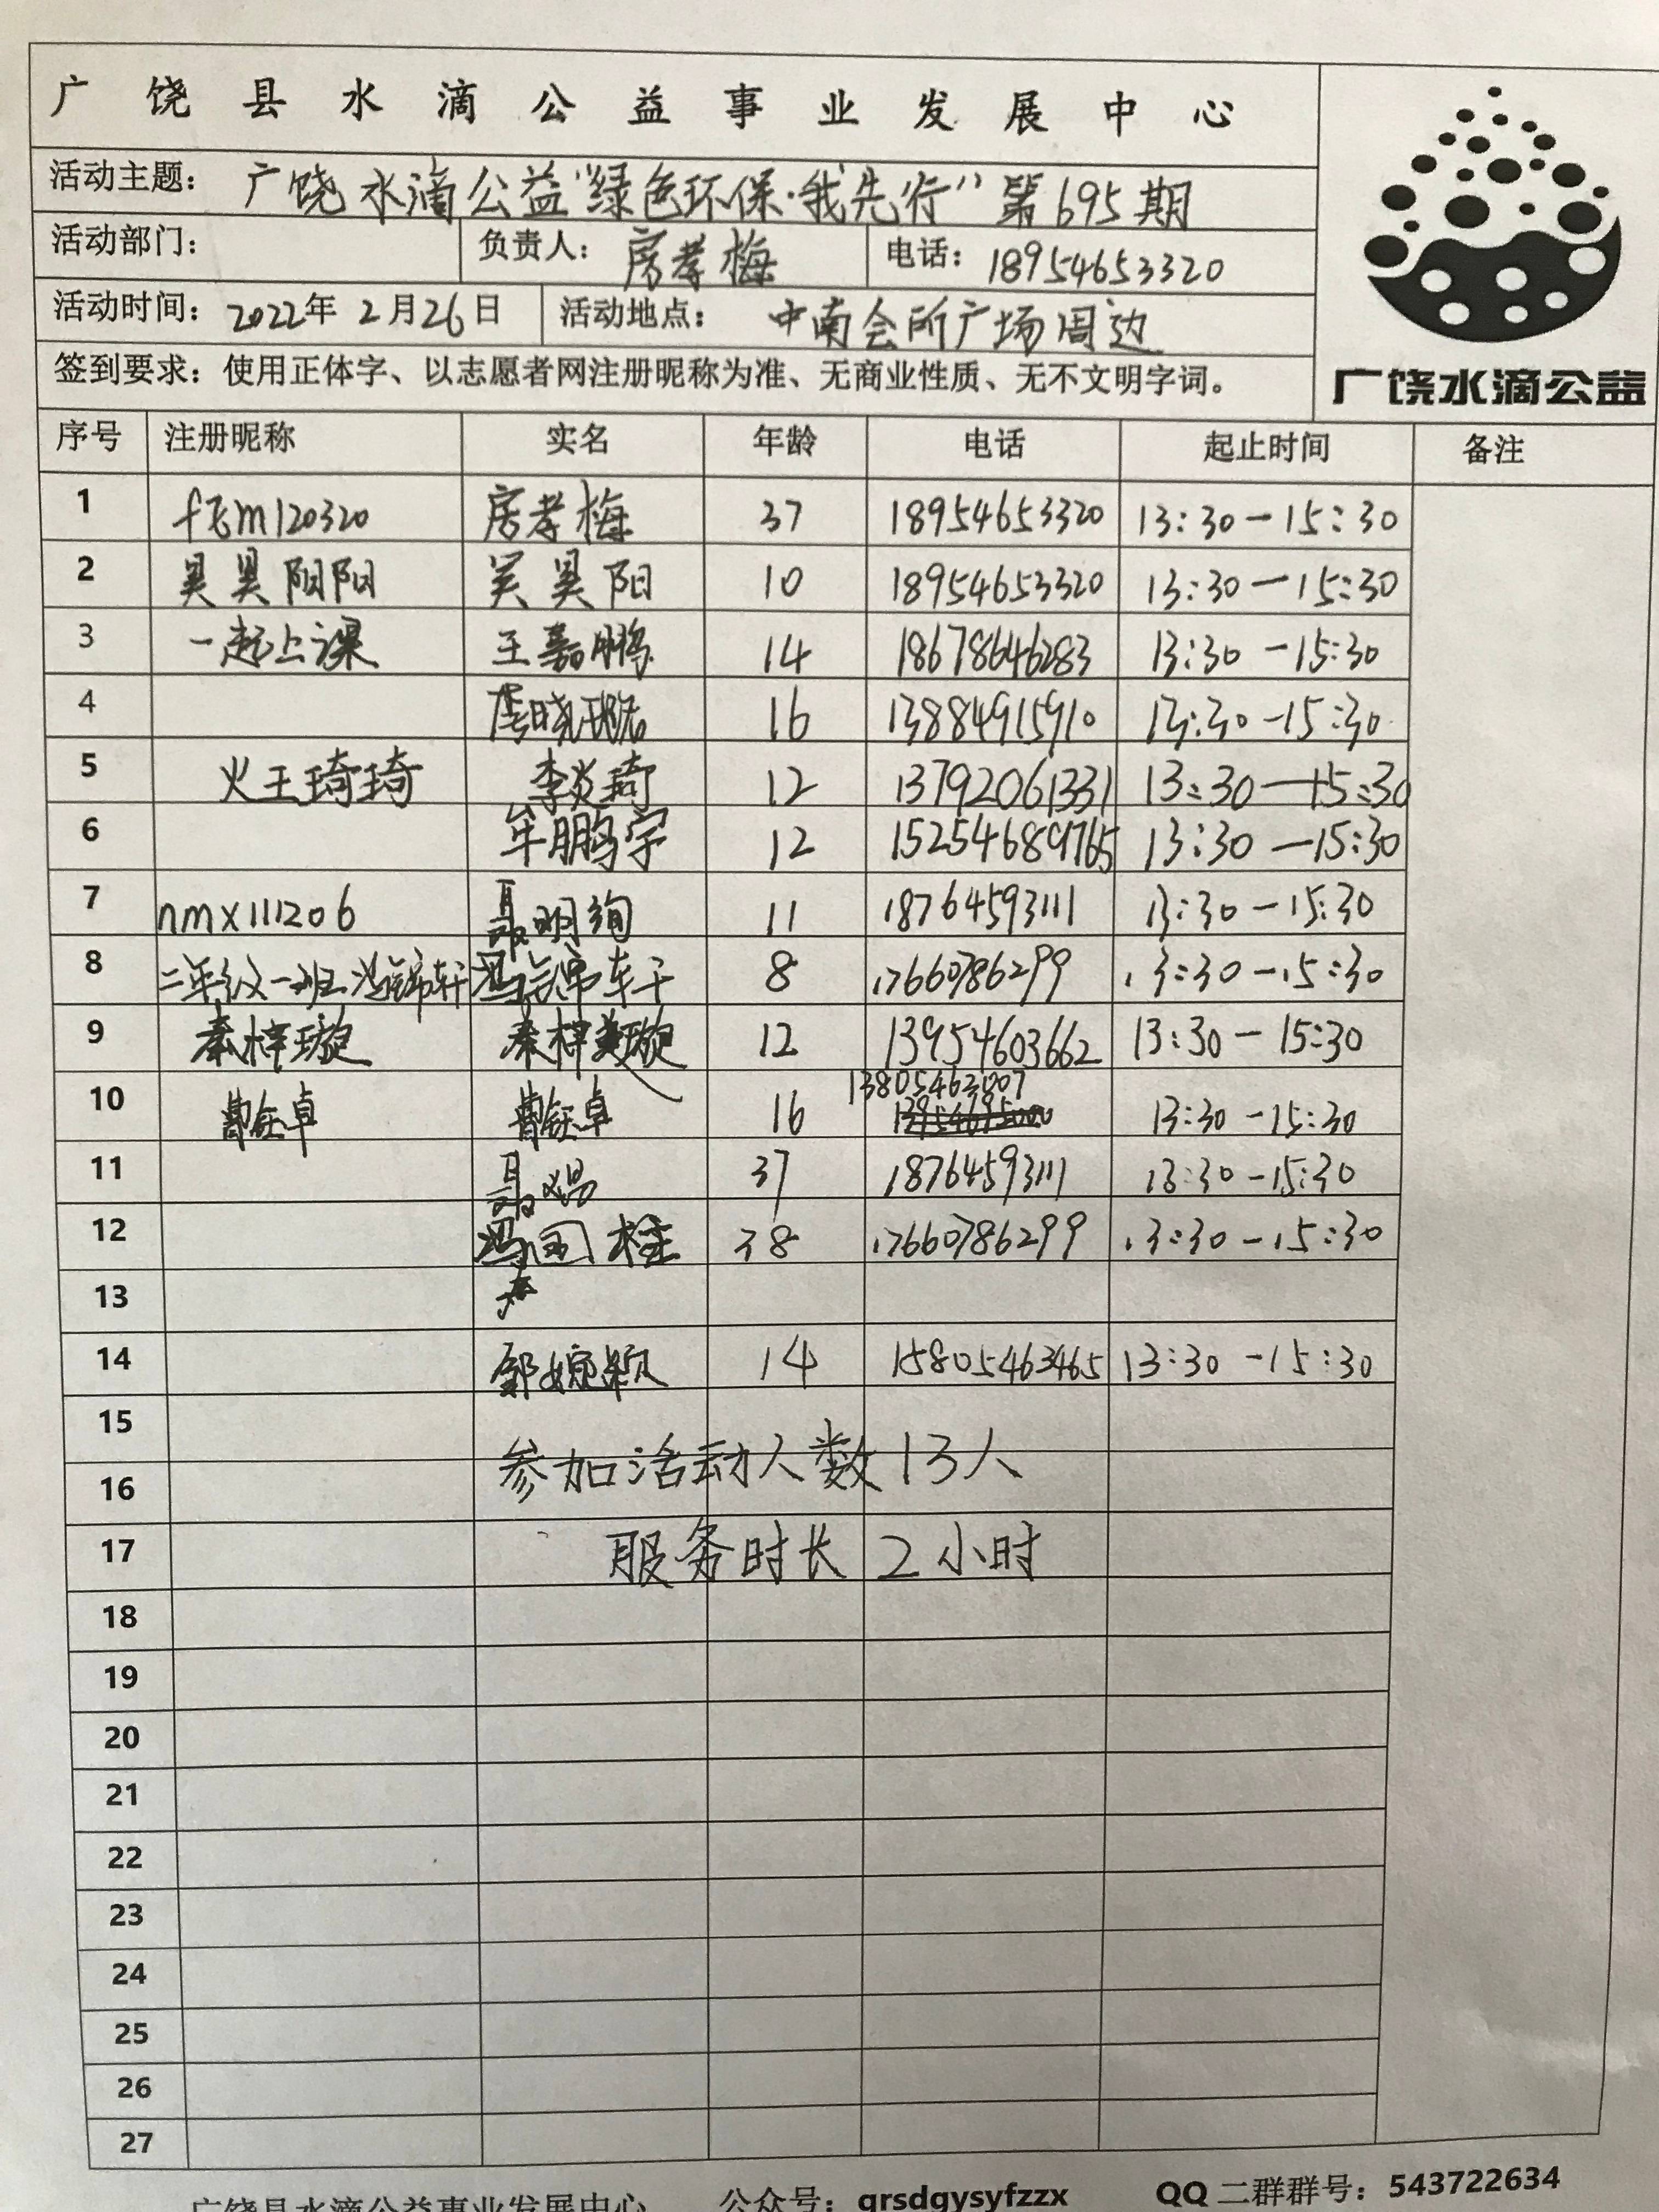 广饶县水滴公益事业发展中心
活动主题：广饶水滴公益“绿色环保·我先行”第695期
活动部门： 负责人：房孝梅 电话：18954653320
活动时间：2022年2月26日 活动地点：中南会所广场周边
签到要求：使用正体字、以志愿者网注册昵称为准、无商业性质、无不文明字词。
广饶水滴公益
序号 注册昵称 实名 年龄 电话 起止时间 备注
1 房孝梅 37 18954653320 13:30-15:30
2 昊昊阳阳 吴昊阳 10 18954653320 13:30-15:30
3 一起上课 王嘉鹏 14 18678646283 13:30-15:30
4 16 13884915910 13:30-15:30
5 火王琦琦 李炎琦 12 13792061331 13:30-15:30
6 牟鹏宇 12 15254689765 13:30-15:30
7 nmx111206 聂明珣 11 18764593111 13:30-15:30
8 二年级一班冯锦轩 冯锦轩 8 17660786299 13:30-15:30
9 秦梓璇 秦梓璇 12 13954603662 13:30-15:30
10 曹钰卓 曹钰卓 16 13:30-15:30
11 聂 37 18764593111 13:30-15:30
12 冯国柱 38 17660786299 13:30-15:30
13
14 邹婉颖 14 15805463465 13:30-15:30
15
参加活动人数13人
16
17 服务时长2小时
18
19
20
21
22
23
24
25
26
27
广饶县水滴公益事业发展中心 公众号：grsdgysyfzzx QQ二群群号：543722634